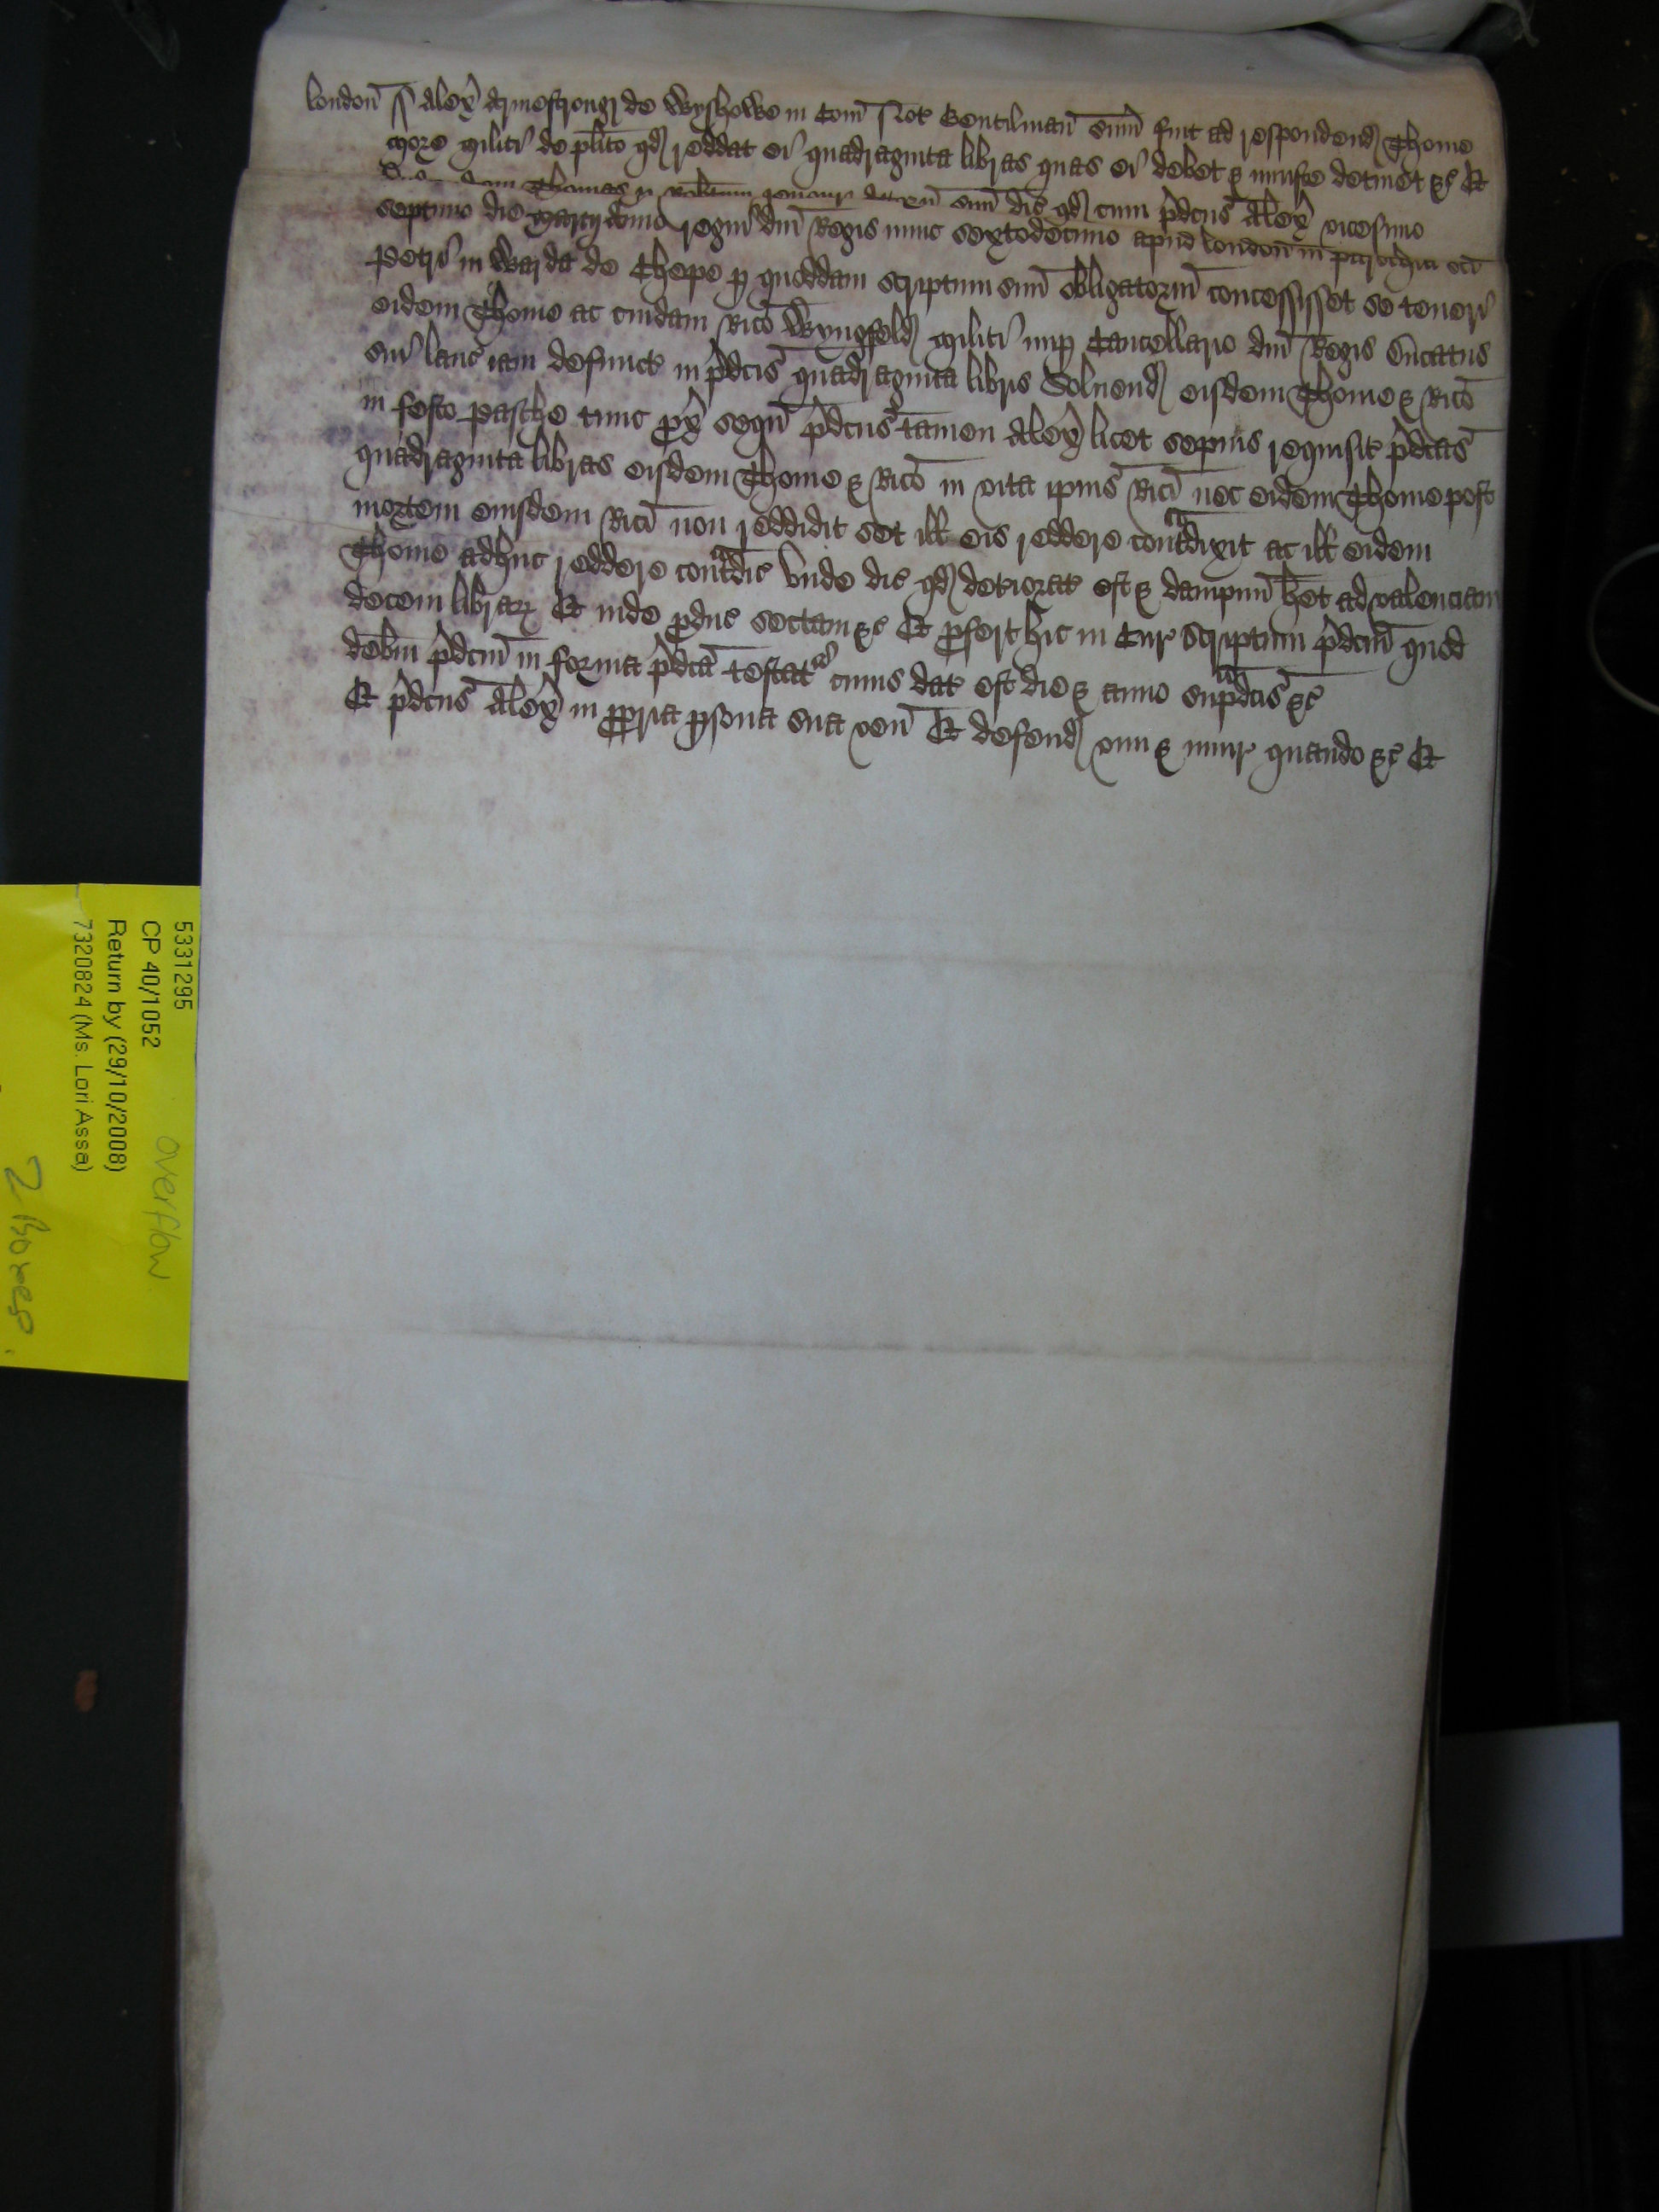 london̄ ss Alex̄ Armestrong de Wyshowe in Com̄ Not̄ Gentilman sum̄ fuit ad respondend Thome
More Militi de pl̄ito qd reddat ei quadraginta libras quas ei debet & iniuste detinet &c Et
Thomas sum̄ dic̄ qd cum p̄dcus Alex̄ vicesimo
septimo die Marcij Anno regni dn̄i Regis nunc sextodecimo apud london̄ in parochia sc̄i
Petri in Warda de Chepe p quoddam scriptum suu̅ obligatoriu̅ concessisset se teneri
eidem Thome ac cuidam Ric̄o Wyngfeld Militi nup Cancellario dn̄i Regis Ducatus
sui lanc̄ iam defunct̄ in p̄dcis quadraginta libris Soluend eisdem Thome & Ric̄o
in festo Pasche tunc px̄ seqū p̄dcus tamen Alex̄ licet sepius requisit̄ p̄dcas
quadraginta libras eisdem Thome & Ric̄o in vita ip̄ius Ric̄i nec eidem Thome post
mortem eiusdem Ric̄i non reddidit set ill̄ eis reddere contᵃdixit ac ill̄ eidem
Thome adhuc reddere contᵃdic̄ Vnde dic̄ qd deteriorat̄ est & dampnu̅ h̄et ad valenciam
decem librar̄ Et inde pduc̄ sectam &c Et pfert hic in Cur̄ scriptum p̄dcm̄ quod
debm̄ p̄dcm̄ in forma p̄dca̅ testatʳ cuius dat̄ est die & anno supᵃdcis &c
Et p̄dcus Alex̄ in ppria psona sua ven̄ Et defend vim & iniur̄ quando &c Et
5331295
CP 40/1052
Return by (29/10/2008)
7320824 (Ms. Lori Assa)
overflow
2 Boxes